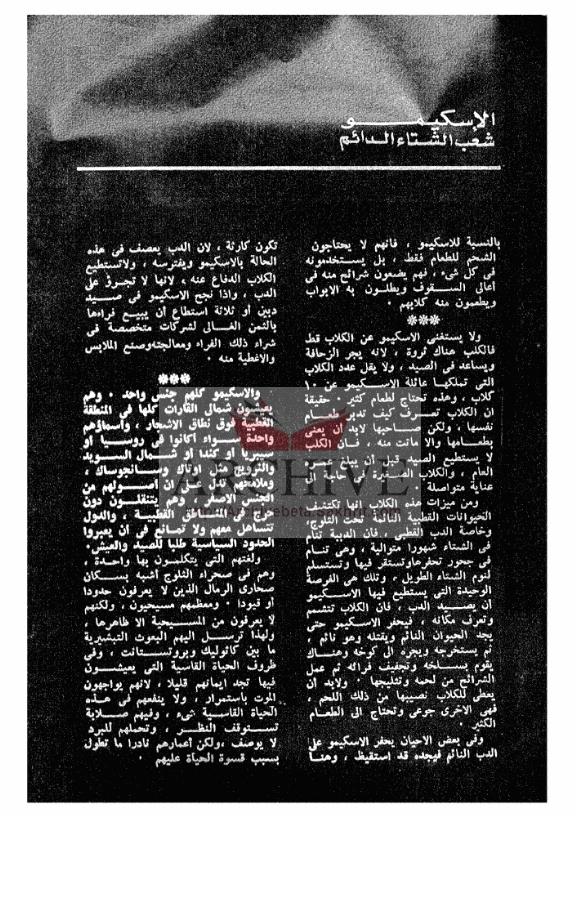 الإسكيمو
شعب الشتاء الدائم
بالنسبة للاسكيمو ، فانهم لا يحتاجون
الشحم للطعام فقط ، بل يستخدمونه
فى كل شىء ، فهم يضعون شرائح منه فى
أعالى السقوف ويطلون به الابواب
ويطعمون منه كلابهم .
***
ولا يستغنى الاسكيمو عن الكلاب قط
فالكلب هناك ثروة ، لانه يجر الزحافة
ويساعد فى الصيد ، ولا يقل عدد الكلاب
التى تملكها عائلة الاسكيمو عن ١٠
كلاب ، وهذه تحتاج لطعام كثير . حقيقة
ان الكلاب تعرف كيف تدبر طعام
نفسها ، ولكن صاحبها لابد أن يعنى
بطعامها والا ماتت منه ، فان الكلب
لا يستطيع الصيد قبل أن يبلغ نحو
العام ، والكلاب الصغيرة فى حاجة الى
عناية متواصلة .
ومن ميزات هذه الكلاب انها تكتشف
الحيوانات القطبية النائمة تحت الثلوج،
وخاصة الدب القطبى ، فان الدببة تنام
فى الشتاء شهورا متوالية ، وهى تنام
فى جحور تحفرها وتستقر فيها وتستسلم
لنوم الشتاء الطويل ، وتلك هى الفرصة
الوحيدة التى يستطيع فيها الاسكيمو
أن يصيد الدب ، فان الكلاب تتشمم
وتعرف مكانه ، فيحفر الاسكيمو حتى
يجد الحيوان النائم ويقتله وهو نائم ،
ثم يستخرجه ويجره الى كوخه وهناك
يقوم بسلخه وتجفيف فرائه ثم عمل
الشرائح من لحمه وتثليجها . ولابد ان
يعطى للكلاب نصيبها من ذلك اللحم ،
فهى الاخرى جوعى وتحتاج الى الطعام
الكثير .
وفى بعض الاحيان يحفر الاسكيمو على
الدب النائم فيجده قد استيقظ ، وهنا
تكون كارثة ، لان الدب يعصف فى هذه
الحالة بالاسكيمو ويفترسه ، ولاتستطيع
الكلاب الدفاع عنه ، لانها لا تجرؤ على
الدب ، واذا نجح الاسكيمو فى صيد
دبين أو ثلاثة استطاع أن يبيع فراءها
بالثمن الغالى لشركات متخصصة فى
شراء ذلك الفراء ومعالجته وصنع الملابس
والاغطية منه .
***
والاسكيمو كلهم جنس واحد . وهم
يعيشون شمالى القارات كلها فى المنطقة
القطبية فوق نطاق الاشجار ، وأسماؤهم
واحدة سواء أكانوا فى روسيا أو
سيبريا أو كندا أو شمال السويد
والنرويج مثل اوتاك وسانجوساك ،
وملامحهم تدل على أن أصولهم من
الجنس الاصفر ، وهم يتنقلون دون
حرج فى الاراضى القطبية ، والدول
تتساهل معهم ولا تمانع فى أن يعبروا
الحدود السياسية طلبا للصيد والعيش.
ولغتهم التى يتكلمون بها واحدة ،
وهم فى صحراء الثلوج أشبه بسكان
صحارى الرمال الذين لا يعرفون حدودا
أو قيودا . ومعظمهم مسيحيون ، ولكنهم
لا يعرفون من المسيحية الا ظاهرها ،
ولهذا ترسل اليهم البعوث التبشيرية
ما بين كاثوليك وبروتستانت ، وفى
ظروف الحياة القاسية التى يعيشون
فيها تجد ايمانهم قليلا ، لانهم يواجهون
الموت باستمرار ، ولا ينفعهم فى هذه
الحياة القاسية شىء ، وفيهم صلابة
تستوقف النظر ، وتحملهم للبرد
لا يوصف ،ولكن أعمارهم نادرا ما تطول
بسبب قسوة الحياة عليهم .
ARCHIVE